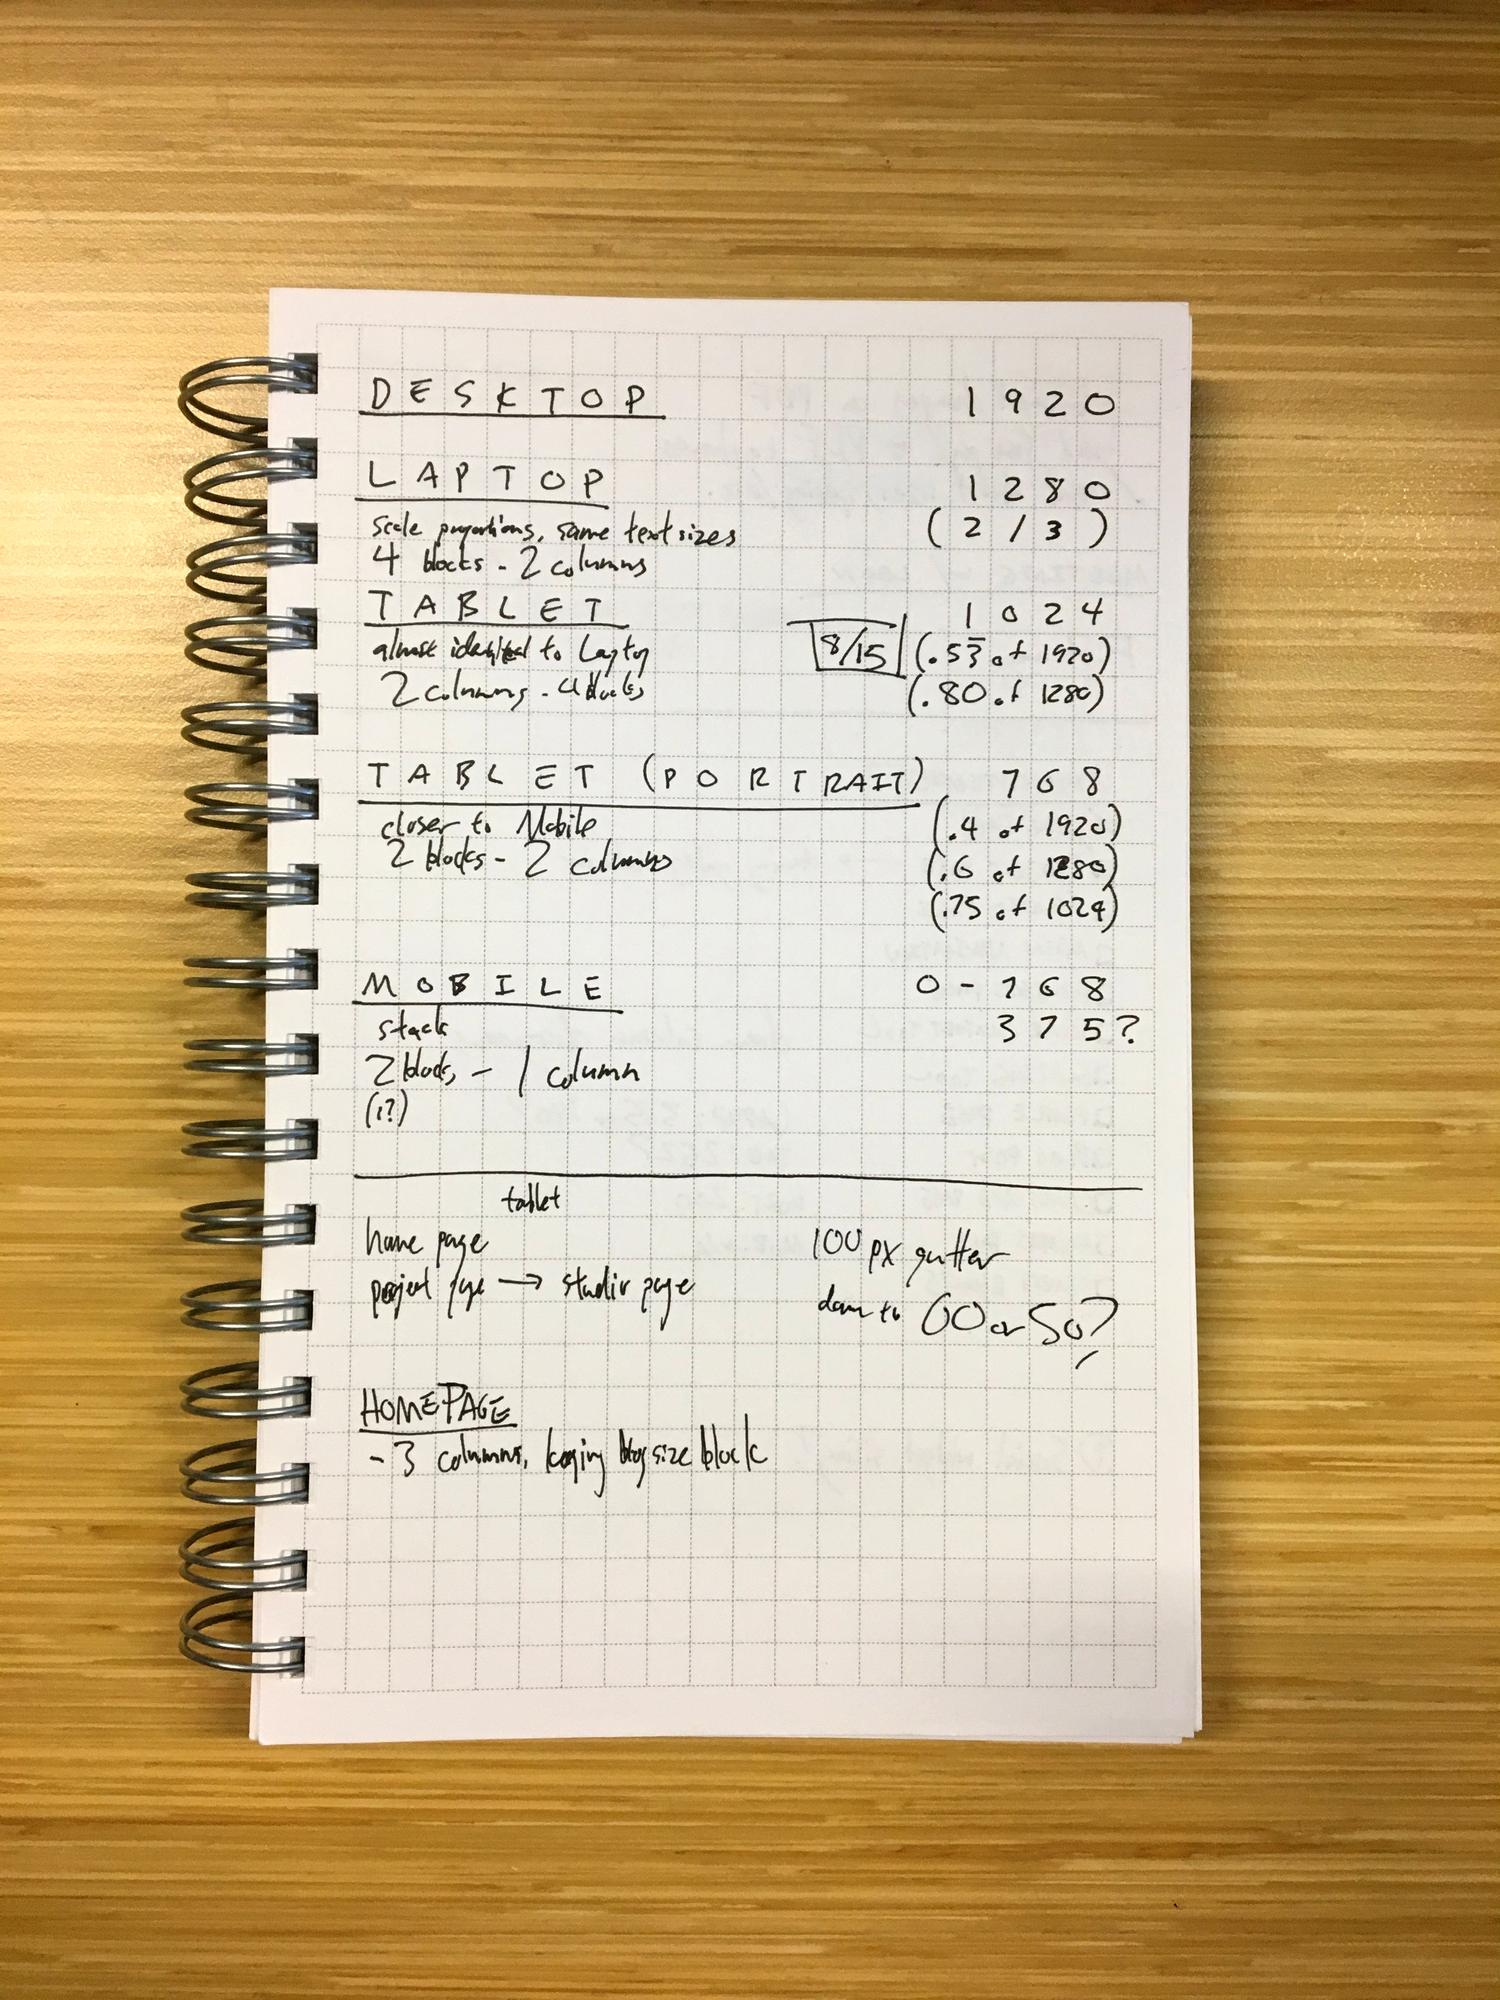 DESKTOP 1920
LAPTOP 1280
scale proportions, same text sizes (2/3)
4 blocks - 2 columns
TABLET 1024
almost identical to Laptop 8/15 (.53 of 1920)
2 columns - 4 blocks (.80 of 1280)
TABLET (PORTRAIT) 768
closer to Mobile (.4 of 1920)
2 blocks - 2 columns (.6 of 1280)
(.75 of 1024)
MOBILE 0-768
stack 375?
2 blocks - 1 column
(1?)
tablet
home page 100 px gutter
project page → studio page down to 60 or 50?
HOMEPAGE
- 3 columns, keeping blog size block